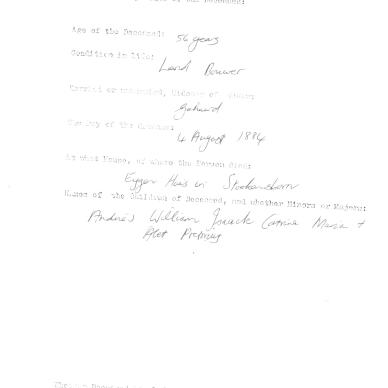 Age of the Deceased: 56 years
Condition in Life:
Land Bouwer
Married or unmarried, Widower or Widow:
gehuwd
The Day of the Decease:
4 August 1884
At what House, or where the Person died:
Eygen Huis in
Names of the Children of Deceased, and whether Minors or Majors:
Andries William Catrina Maria +